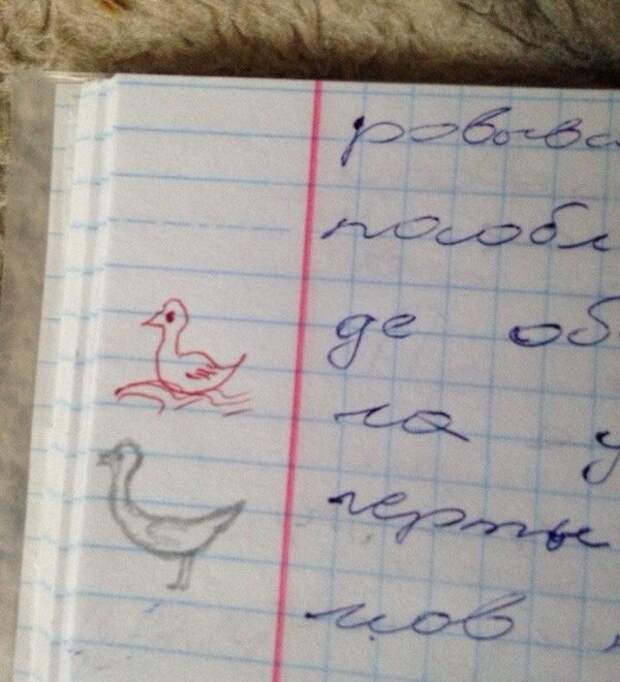 ровыва
полобл
де об
ла у
черты
мов